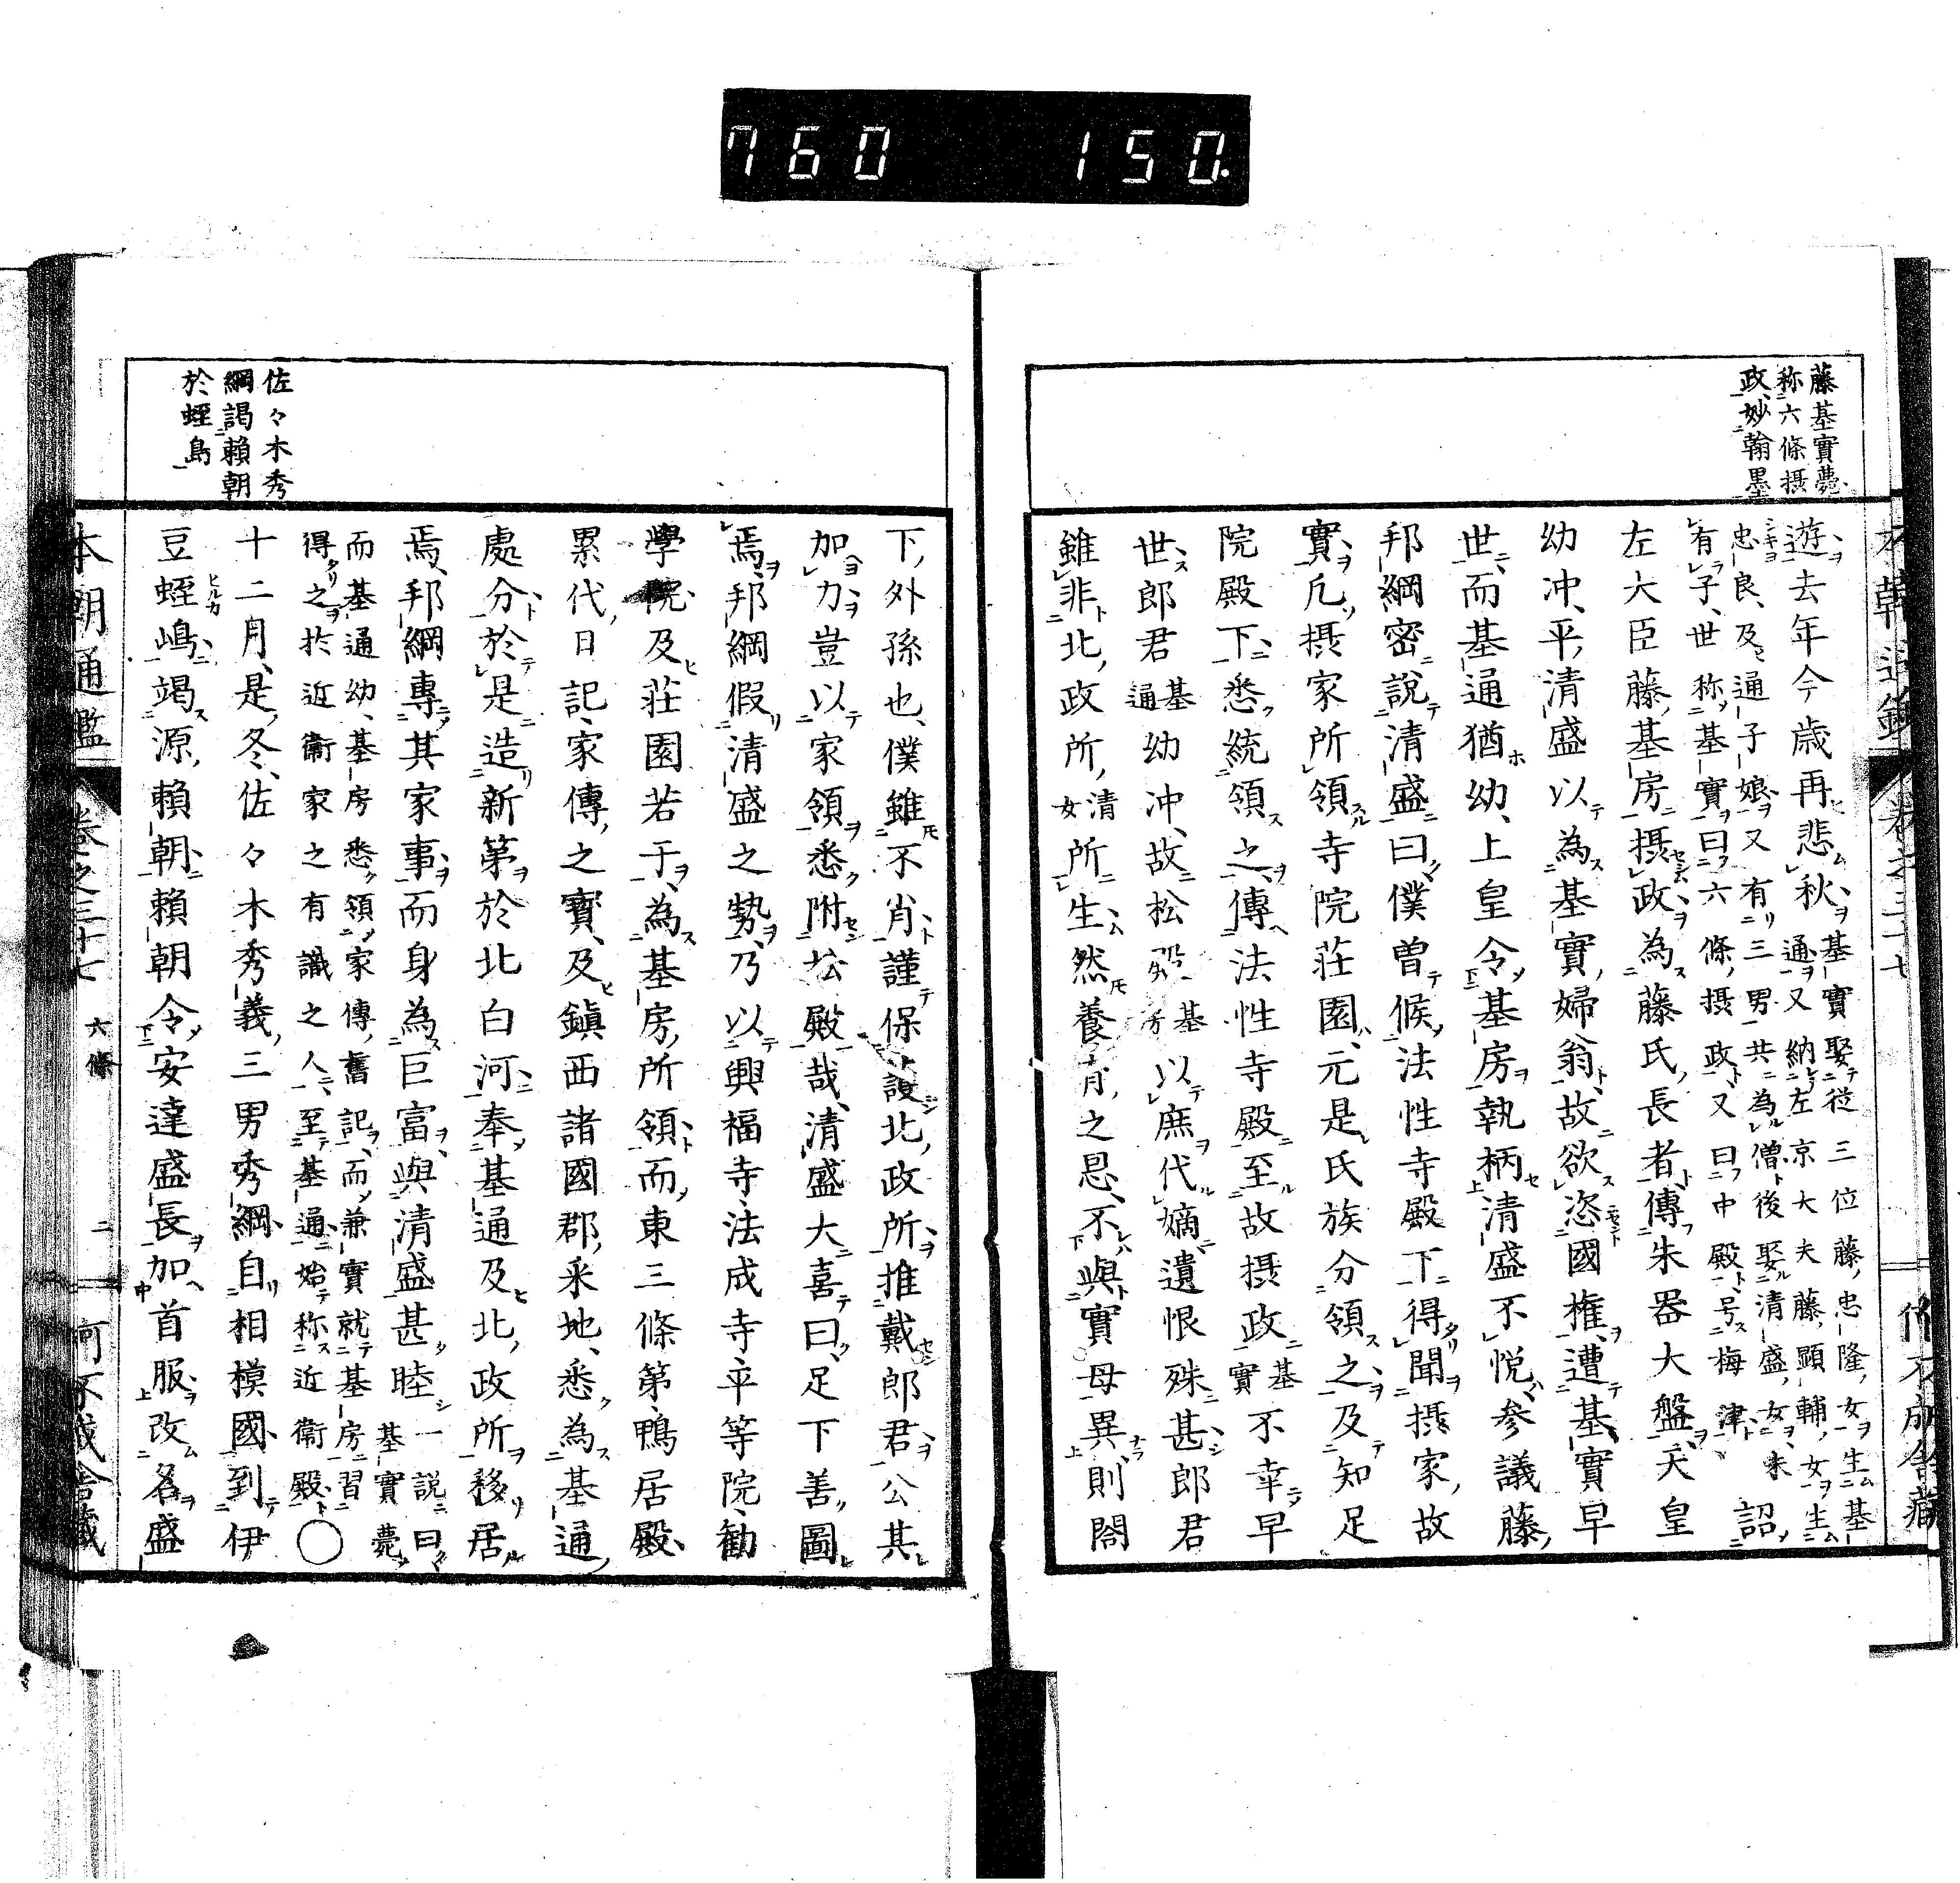 760 150.
藤基實薨
称六條摂
政妙翰墨
遊去年今歳再悲秋基實娶従三位藤忠隆女生基
通又納左京大夫藤顕輔女生
忠良及通子娘又有三男共為僧後娶清盛女未
有子世称基實曰六條摂政又曰中殿号梅津 詔
左大臣藤基房摂政為藤氏長者傳朱器大盤天皇
幼冲平清盛以為基實婦翁故欲恣國権遭基實早
世而基通猶幼上皇令基房執柄清盛不悦参議藤
邦綱密說清盛曰僕曽候法性寺殿下得聞摂家故
實凢摂家所領寺院荘園元是氏族分領之及知足
院殿下悉統領之傳法性寺殿至故摂政基實不幸早
世郎君基通幼冲故松殿基房以庶代嫡遺恨殊甚郎君
雖非北政所清女所生然養育之恩不與實母異則閤
下外孫也僕雖不肖謹保護北政所推戴郎君公其
加力豈以家領悉附松殿哉清盛大喜曰足下善圖
焉邦綱假清盛之勢乃以興福寺法成寺平等院勧
學院及荘園若于為基房所領而東三條第鴨居殿
累代日記家傳之寶及鎭西諸國郡釆地悉為基通
處分於是造新第於北白河奉基通及北政所移居
焉邦綱專其家事而身為巨富與清盛甚睦一説曰
基實薨
而基通幼基房悉領家傳舊記而兼實就基房習
得之於近衞家之有識之人至基通始称近衞殿〇
十二月是冬佐々木秀義三男秀綱自相模國到伊
豆蛭嶋謁源頼朝頼朝令安達盛長加首服改名盛
佐々木秀
綱謁頼朝
於蛭島
本朝通鑑 卷之三十七 六條 二